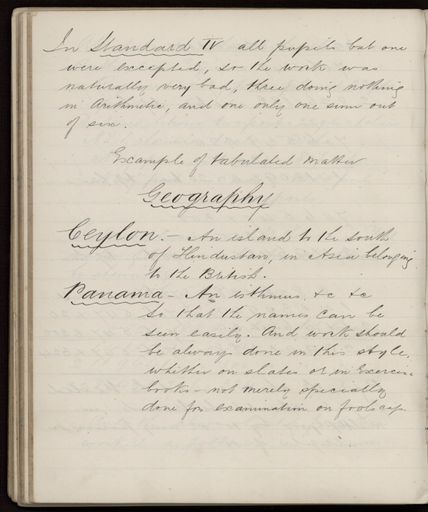 In Standard IV all pupils but one
were excepted, so the work was
naturally very bad, three doing nothing
in Arithmetic, and one only one sum out
of six.
Example of tabulated matter
Geography
Ceylon. — An island to the south
of Hindustan, in Asia belonging
to the British.
Panama — An isthmus &c &c
So that the names can be
seen easily. And work should
be always done in this style,
whether on slates or in Exercise
books — not merely specially
done for examination on foolscap.